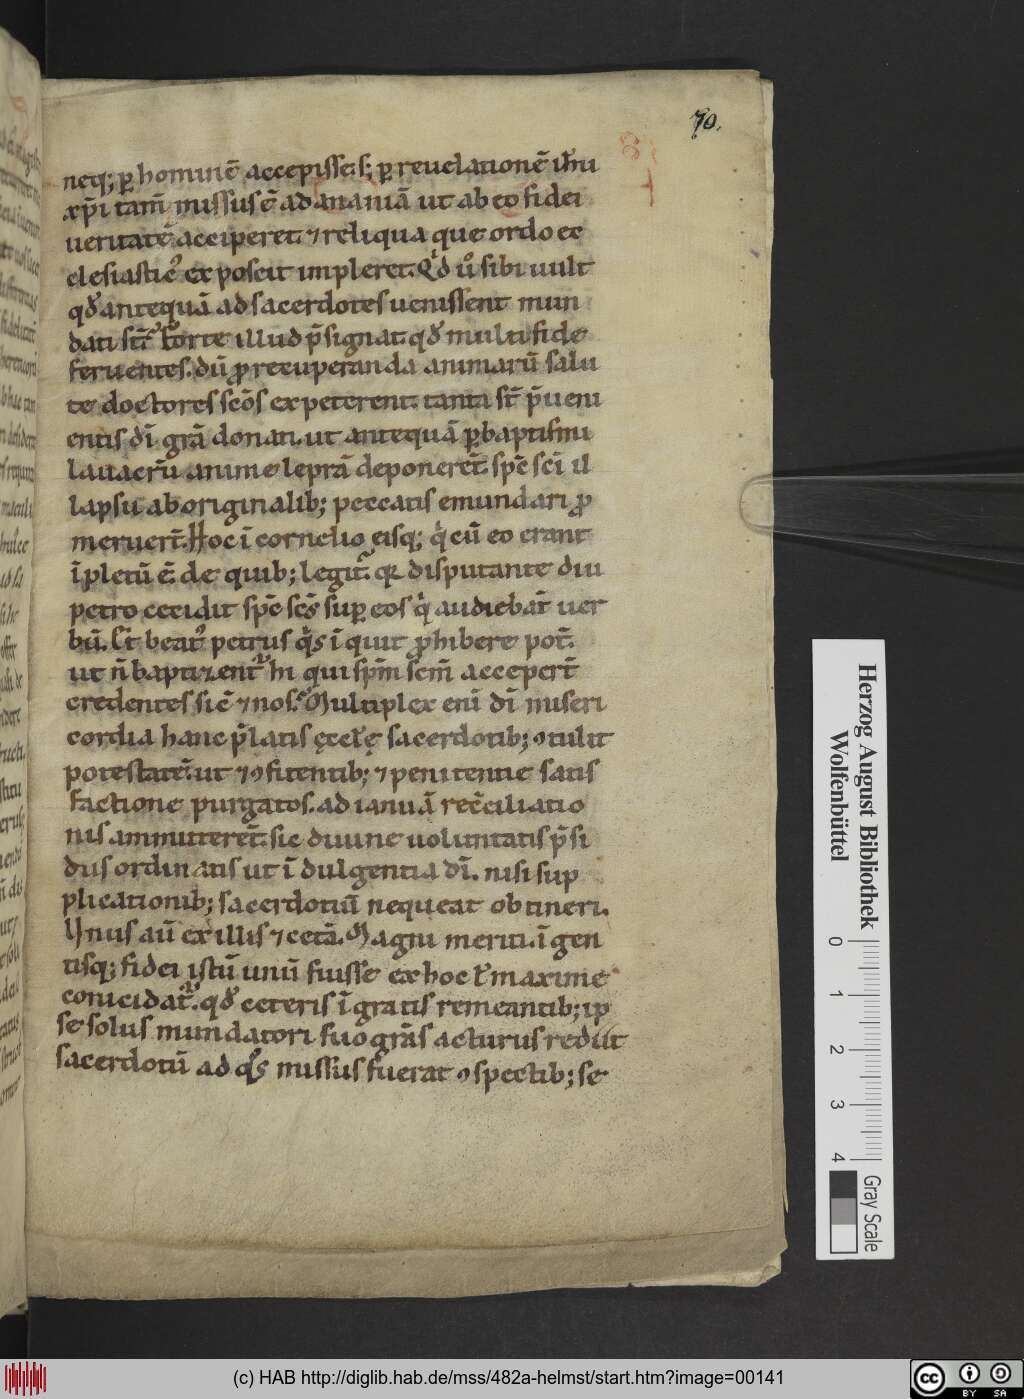 70.
neq; ꝑ hominē accepisse. s; ꝑ reuelationē ihu
xp̄i tam̄ missus ē ad ananiā ut ab eo fidei
ueritatē acciperet. ⁊ reliqua que ordo ec
clesiasticꝰ exposcit impleret. Qͥd ū sibi uult
qđ antequā ad sacerdotes uenissent mun
dati st̄. Forte illud p̄signat. qđ multi fide
feruentes. dū ꝓ recuperanda animarū salu
te doctores sc̄os expeterent. tanta st̄ p̄ueni
entis dī grā donati. ut antequā ꝑ baptismi
lauacrū anime leprā deponerēt. spē scī il
lapsu ab originalib; peccatis emundari ꝓ
meruer̄t. Hoc ī cornelio eisq; qͥ cū eo erant
īpletū ē. de quib; legit̄. qꝛ disputante diu
petro cecidit spc̄ sc̄s sup eos qͥ audiebāt uer
bū. Et beatꝰ petrus q̄s īquit ꝓhibere pot̄.
ut n̄ baptizent̄ hi qui spm̄ scm̄ acceper̄t
credentes sic̄ ⁊ nos. Multiplex enī dī miseri
cordia hanc p̄latis ęccl̄ę sacerdotib; ꝯtulit
potestatē. ut ⁊ ꝯfitentib; ⁊ penitentie satis
factione purgatos. ad ianuā recc̄iliatio
nis ammitterēt. sic diuine uoluntatis p̄si
dus ordinatis ut īdulgentia dī. nisi sup
plicationib; sacerdotiū nequeat obtineri.
Unus aū ex illis ⁊ cetā. Magni meriti. ī gen
tisq; fidei istū unū fuisse ex hoc ł maxime
conicidat̄. qđ ceteris īgratis remeantib; ip
se solus mundatori suo grās acturus rediit
sacerdotū ad q̄s missus fuerat ꝯspectib; se
Herzog August Bibliothek
Wolfenbüttel
0 1 2 3 4
Gray Scale
(c) HAB http://diglib.hab.de/mss/482a-helmst/start.htm?image=00141
cc BY SA